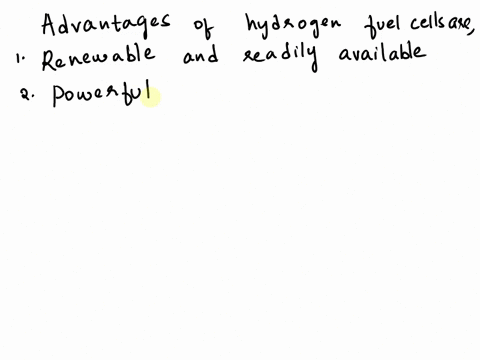 Advantages of hydrogen fuel cells are,
1. Renewable and readily available
2. Powerful